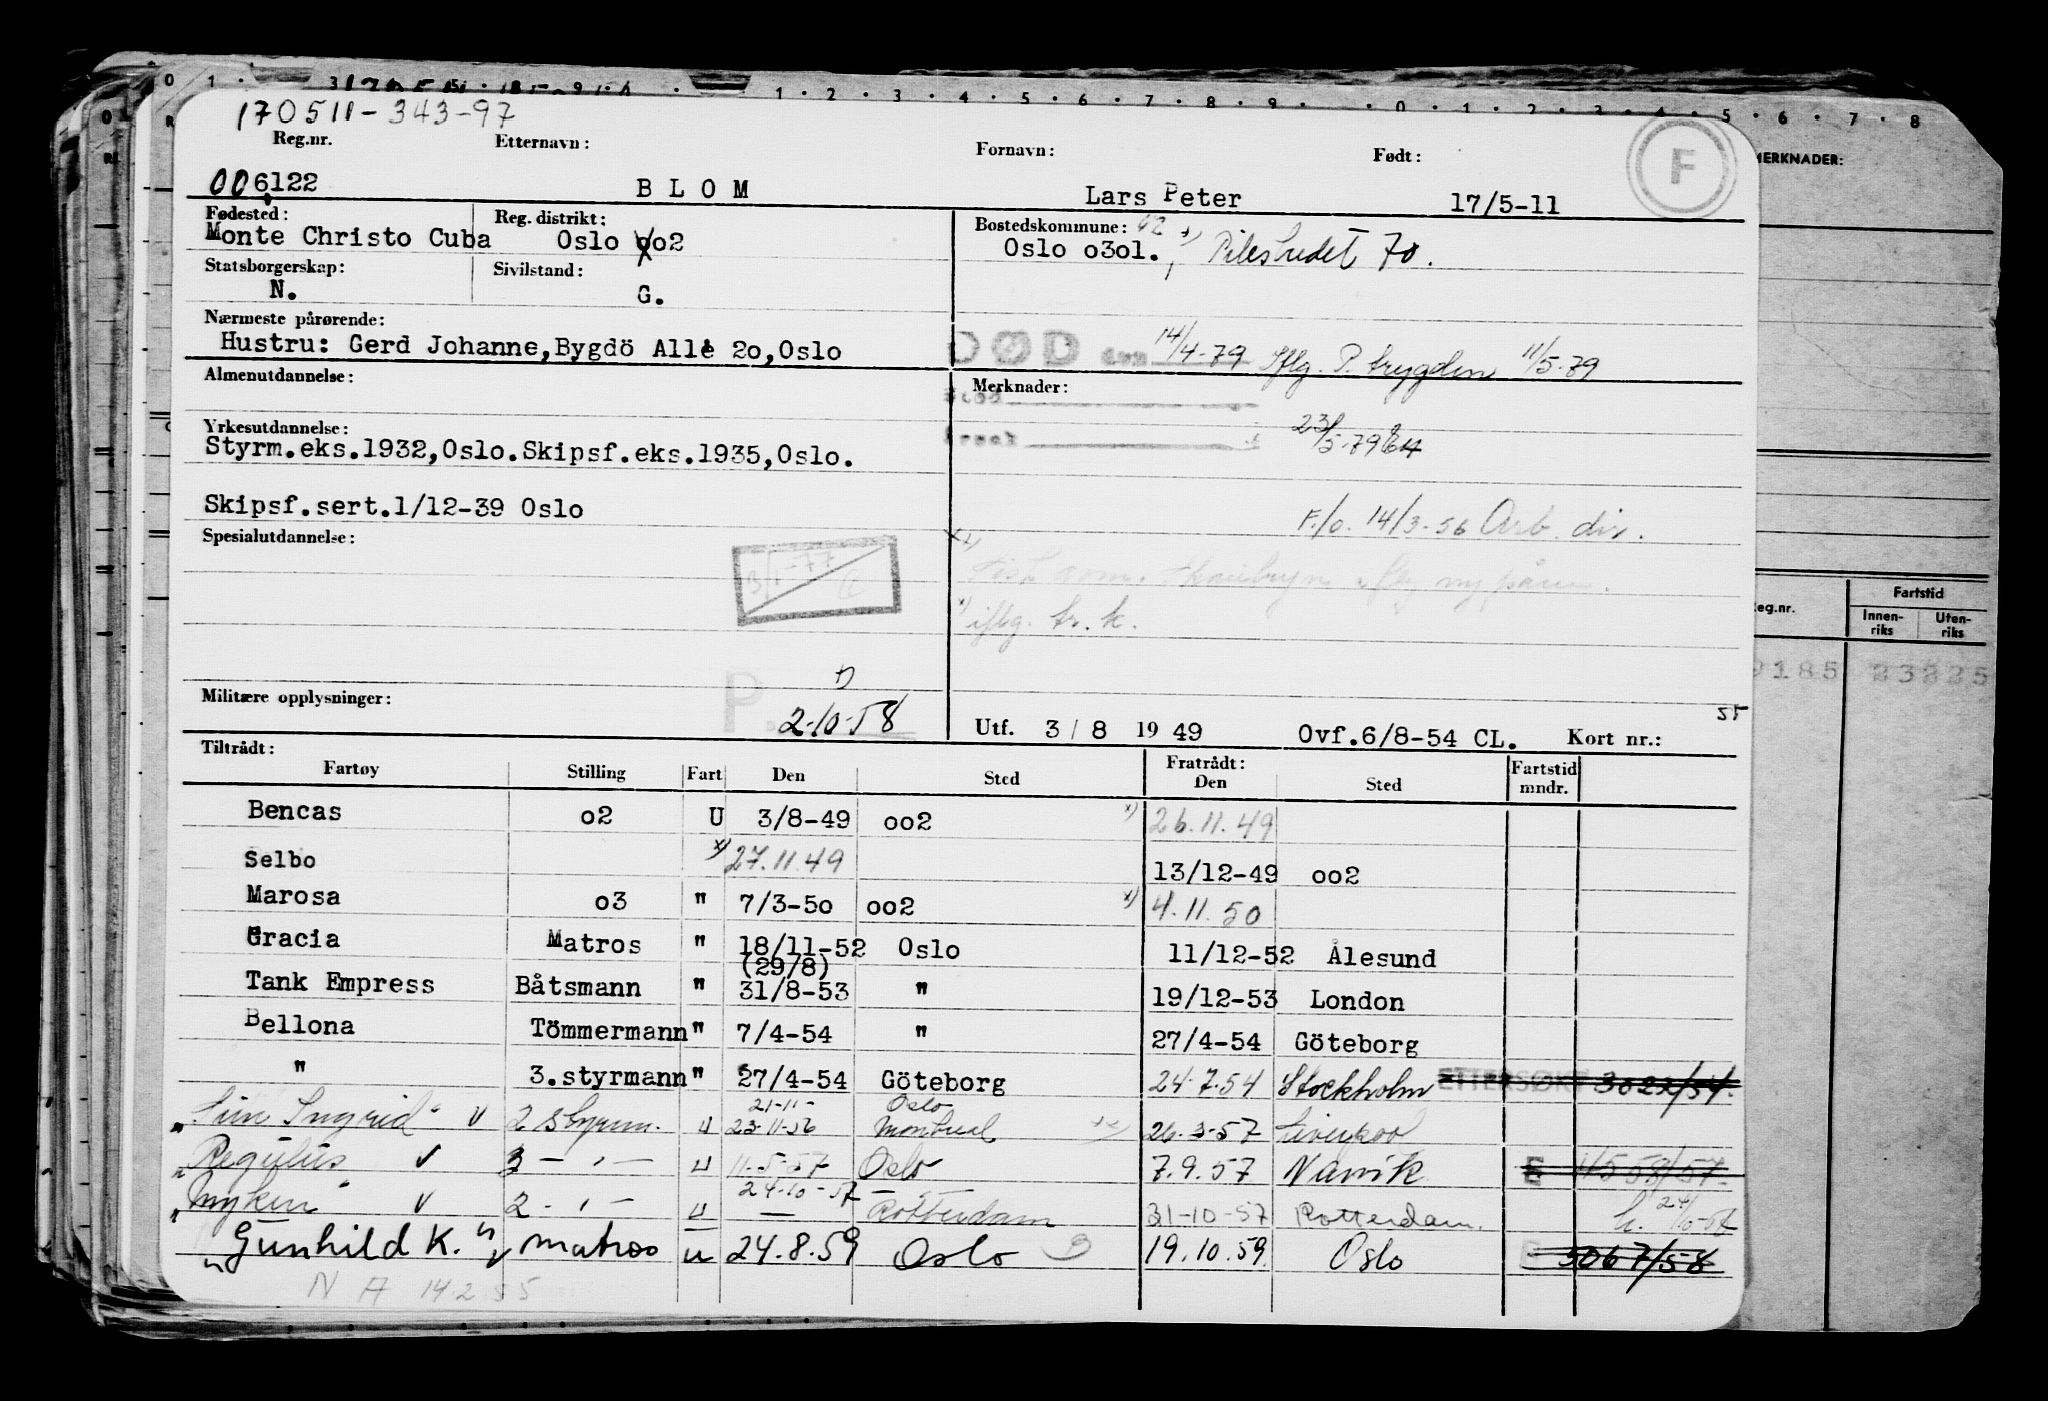 170511-343-97
Reg.nr. Etternavn: Fornavn: Født:
F
006122 BLOM Lars Peter 17/5-11
MERKNADER:
Fødested: Reg. distrikt: Bostedskommune:
Monte Christo Cuba Oslo oo2 Oslo o3ol. 42 Pilestredet 70.
Statsborgerskap: Sivilstand:
N. G.
Nærmeste pårørende:
Hustru: Gerd Johanne,Bygdö Allé 2o,Oslo
DØD den 14/4-79 Iflg. P. trygden 11/5-79
Almenutdannelse: Merknader:
23/5-79
Yrkesutdannelse:
Styrm.eks.1932,Oslo.Skipsf.eks.1935,Oslo.
Skipsf.sert.1/12-39 Oslo
F./o. 14/3-56 Arb. dir.
Spesialutdannelse:
3/1-77
x) iflg. tr. k.
Reg.nr. Fartstid
Innen-riks Uten-riks
9185 23225
Militære opplysninger: P. 2-10-58
Utf. 3/8 1949 Ovf.6/8-54 CL. Kort nr.: 55
Tiltrådt: Fratrådt:
Fartøy Stilling Fart Den Sted Den Sted Fartstid mndr.
Bencas o2 U 3/8-49 oo2 x) 26.11.49
Selbo x) 27.11.49 13/12-49 oo2
Marosa o3 " 7/3-5o oo2 x) 4.11.50
Gracia Matros " 18/11-52 Oslo 11/12-52 Ålesund
(29/8)
Tank Empress Båtsmann " 31/8-53 " 19/12-53 London
Bellona Tömmermann " 7/4-54 " 27/4-54 Göteborg
" 3.styrmann " 27/4-54 Göteborg 24.7.54 Stockholm ETTERSØKT 3022/54.
21-11- Oslo
"Sun Ingrid" v 2 styrm. u 23-11-56 Montreal 26.3-57 Liverpool
"Regulus v 3 - " - u 11-5-57 Oslo 7.9.57 Narvik E 1/5 58/57.
24-10-57 -
"Myken" v 2 - " - u Rotterdam 31-10-57 Rotterdam. 24/10-57
"Gunhild K." v matros u 24.8.59 Oslo 19.10.59. Oslo E 5067/58
N A 14.2.55